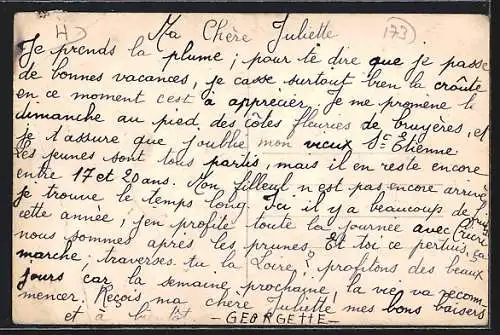 H) Ma Chère Juliette 173
Je prends la plume ; pour te dire que je passe
de bonnes vacances, je casse surtout bien la croûte
en ce moment c'est à apprécier. Je me promène le
dimanche au pied des côtes fleuries de bruyères, et
je t'assure que j'oublie mon vieux St Etienne
les jeunes sont tous partis, mais il en reste encore
entre 17 et 20 ans. Mon filleul n'est pas encore arrivé,
je trouve le temps long. Ici il y a beaucoup de fruits
cette année, j'en profite toute la journée avec Lucie
nous sommes après les prunes. Et toi ce pertuis, ça
marche, traverses-tu la Loire ? profitons des beaux
jours car la semaine prochaine, la vie va recom
mencer. Reçois ma chère Juliette mes bons baisers
et à bientôt - GEORGETTE -